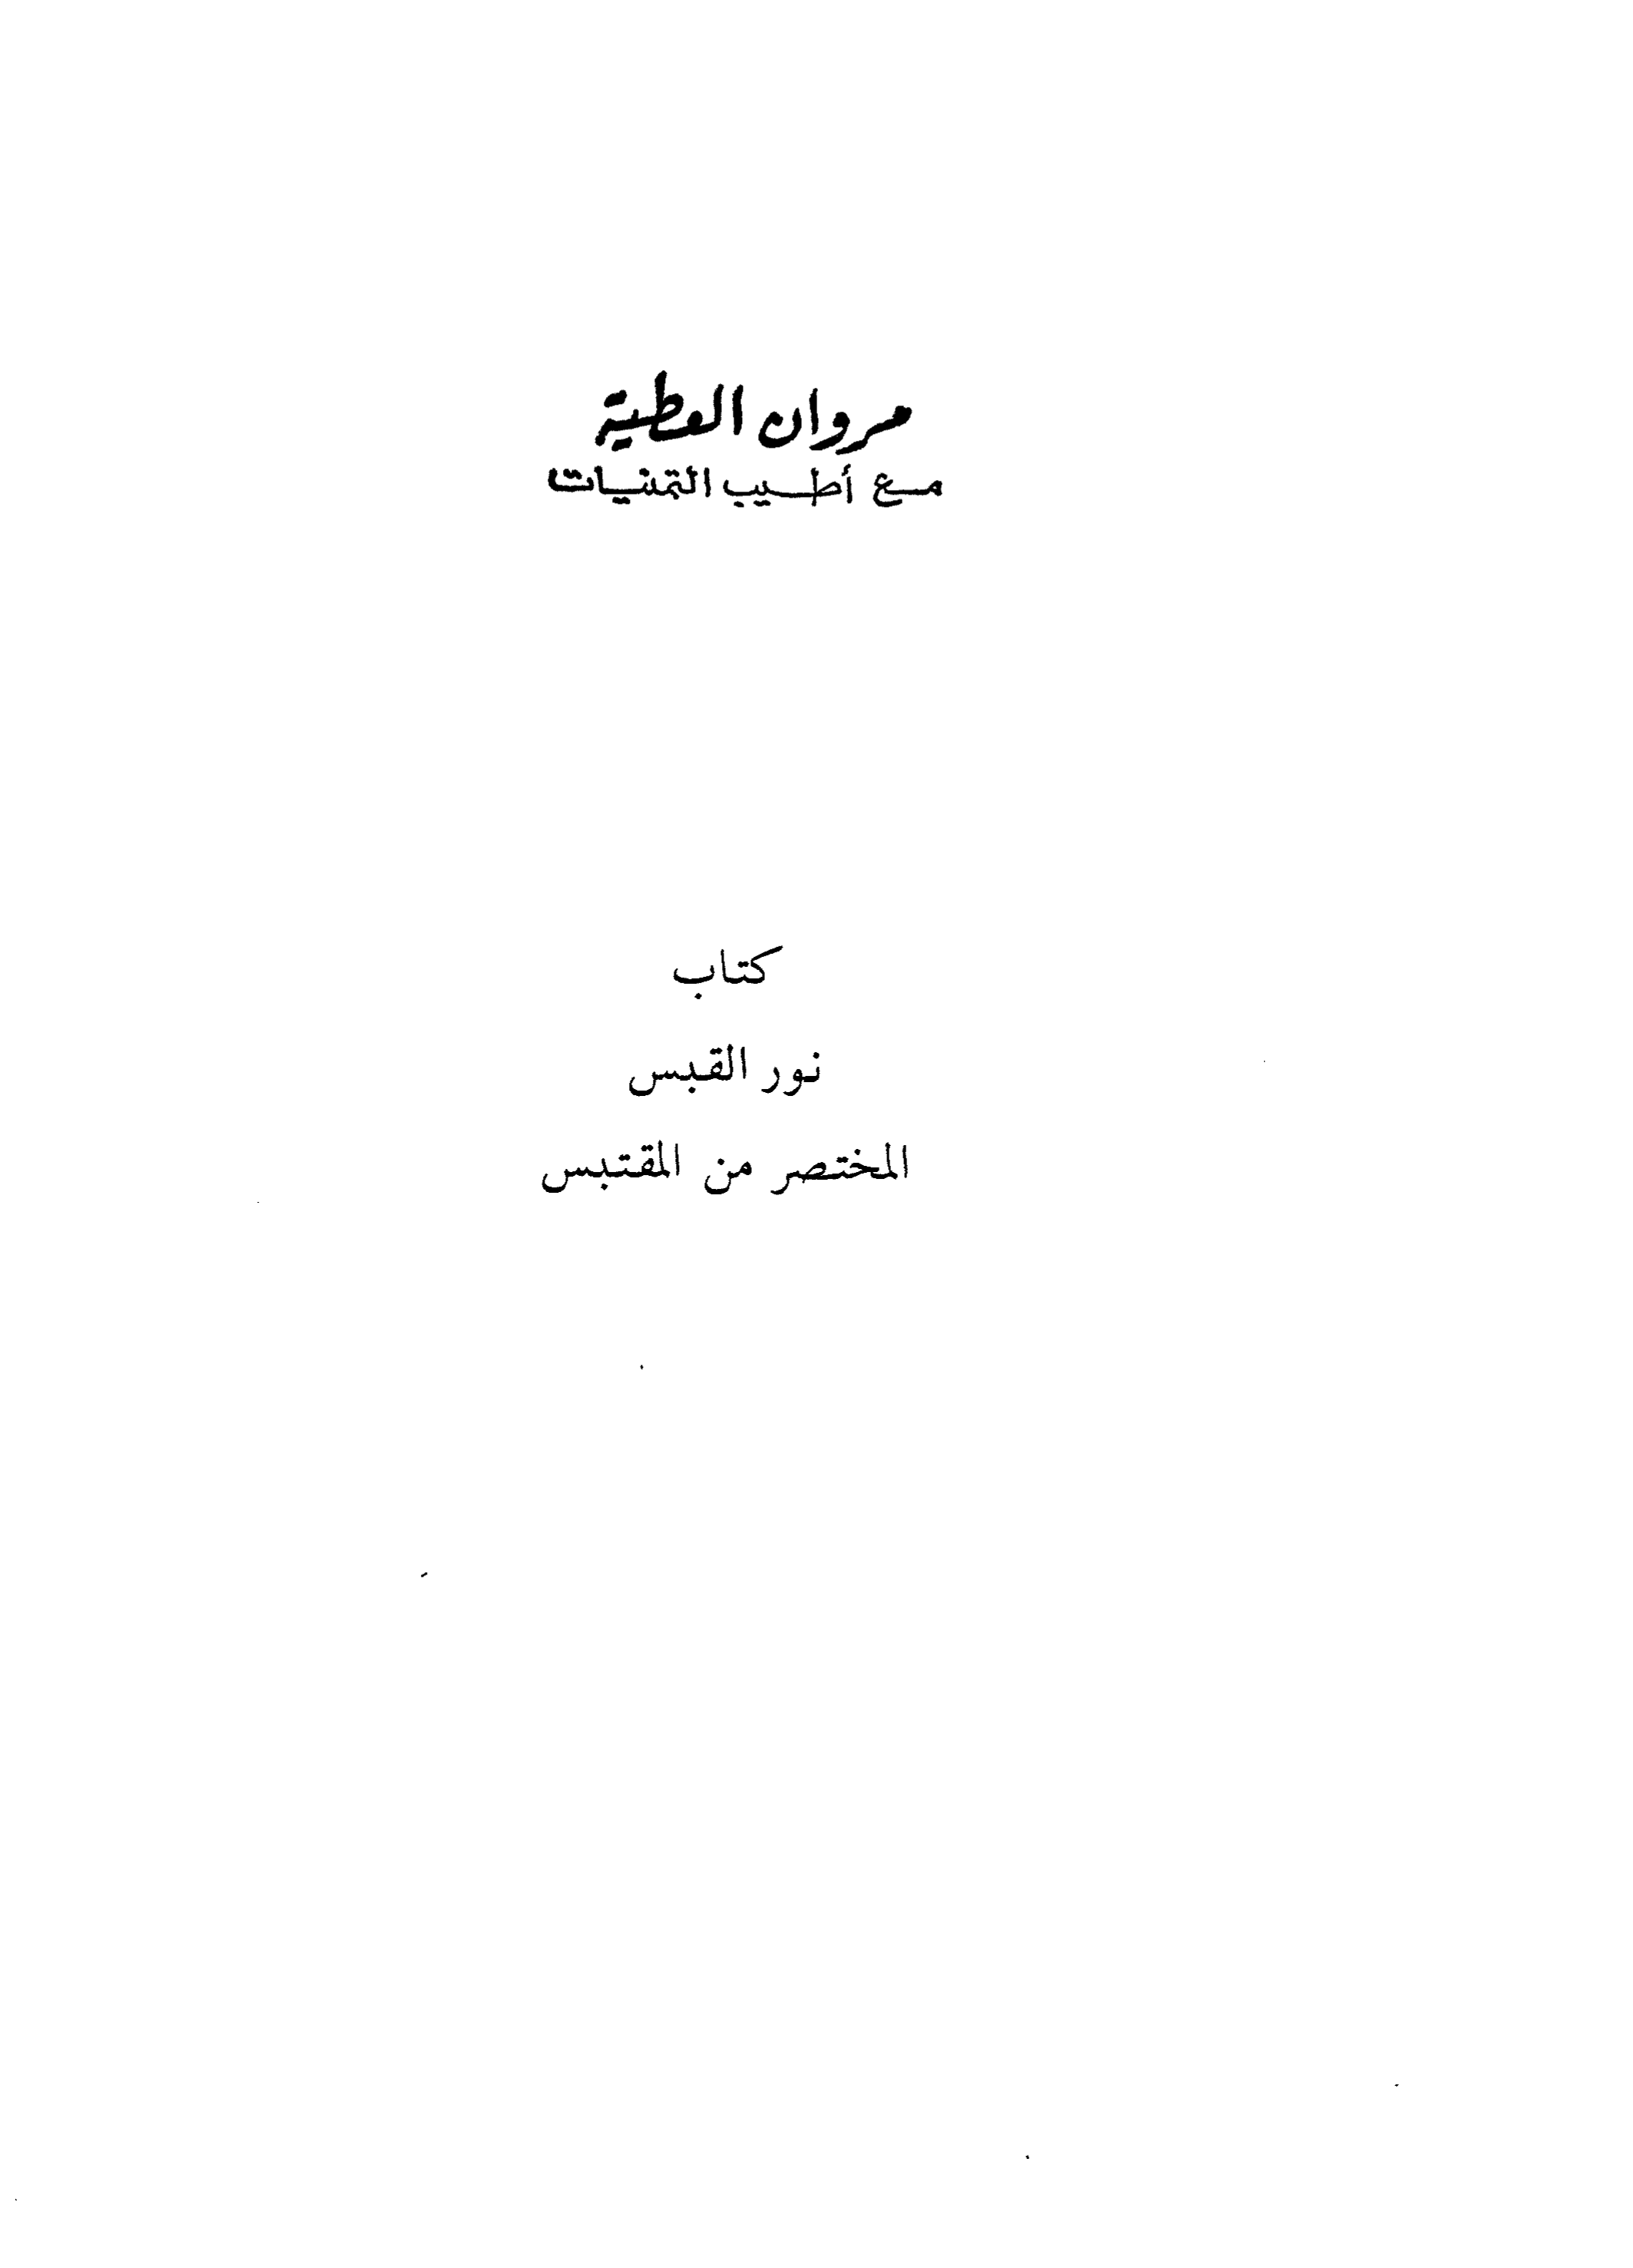 مروان العطية
مع أطيب التمنيات
كتاب
نور القبس
المختصر من المقتبس